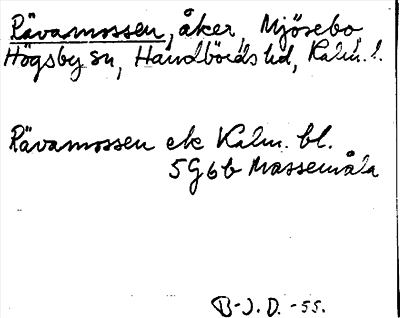 Rävamossen, åker, Mjösebo,
Högsby sn, Handbörds hd, Kalm. l.
Rävamossen ek Kalm. bl.
5G6b Massemåla
B-J.D. -55.